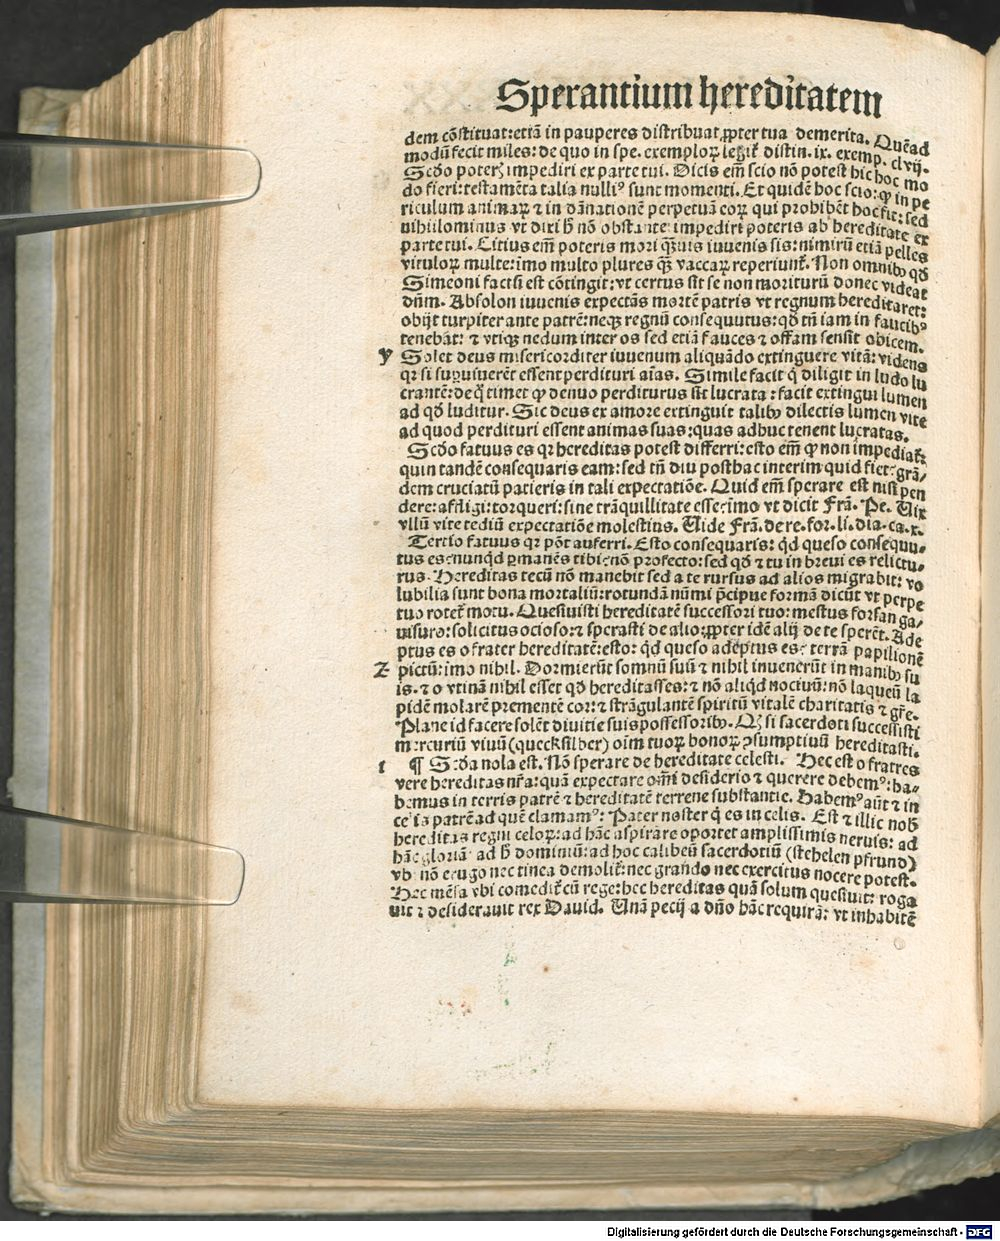 Sperantium hereditatem
dem cōstituat: etiā in pauperes distribuat ꝓpter tua demerita. Quēad
modū fecit miles: de quo in spe. exemploꝝ legit̄ distin. ix. exemp. clvij.
Scḋo poterꝫ impediri ex parte tui. Dicis em̄ scio nō potest hic hoc mo
do fieri: testamēta talia nulliꝰ sunt momenti. Et quidē hoc scio: ꝙ in pe
riculum animaꝝ ⁊ in dānationē perpetuā eoꝝ qui prohibēt hoc fit: sed
nihilominus vt dixi h̄ nō obstante: impediri poteris ab hereditate ex
parte tui. Citius em̄ poteris mori ꝙ̄uis iuuenis sis: nimirū etiā pelles
vituloꝝ multe: imo multo plures ꝙ̄ vaccaꝝ reperiunt̄. Non omnibꝫ qḋ
Simeoni factū est cōtingit: vt certus sit se non moriturū donec videat
dn̄m. Absolon iuuenis expectās mortē patris vt regnum hereditaret:
obijt turpiter ante patrē: neqꝫ regnū consequutus: qḋ tn̄ iam in faucibꝰ
tenebat: ⁊ vtiqꝫ nedum inter os sed etiā fauces ⁊ offam sensit obicem.
y Solet deus misericorditer iuuenum aliquādo extinguere vitā: videns
qꝛ si superuiuerēt essent perdituri aīas. Simile facit q̇ diligit in ludo lu
crantē: de q̊ timet ꝙ denuo perditurus sit lucrata: facit extingui lumen
ad qḋ luditur. Sic deus ex amore extinguit talibꝫ dilectis lumen vite
ad quod perdituri essent animas suas: quas adhuc tenent lucratas.
Scḋo fatuus es qꝛ hereditas potest differri: esto em̄ ꝙ non impediat̄:
quin tandē consequaris eam: sed tn̄ diu posthac interim quid fiet: grā/
dem cruciatū patieris in tali expectatiōe. Quid em̄ sperare est nisi pen
dere: affligi: torqueri: sine trāquillitate esse: imo vt dicit Frā. Pe. Vix
vllū vite tediū expectatiōe molestius. Vide Frā. de re. for. li. dia. ca. x.
Tertio fatuus qꝛ pōt auferri. Esto consequaris: qḋ queso consequu⸗
tus es: nunqḋ ꝑmanēs tibi: nō profecto: sed qḋ ⁊ tu in breui es relictu⸗
rus. Hereditas tecū nō manebit sed a te rursus ad alios migrabit: vo
lubilia sunt bona mortaliū: rotundā nūmi p̄cipue formā dicūt vt perpe
tuo rotet̄ motu. Quesiuisti hereditatē successori tuo: mestus forsan ga⸗
uisuro: solicitus ocioso: ⁊ sperasti de alio: ꝓpter idē alij de te sperēt. Ade
ptus es o frater hereditatē: esto: qḋ queso adeptus es: terrā papilionē
z pictū: imo nihil. Dormierūt somnū suū ⁊ nihil inuenerūt in manibꝫ su
is. ⁊ o vtinā nihil esset qḋ hereditasses: ⁊ nō aliqḋ nociuū: nō laqueū la
pidē molarē prementē cor: ⁊ strāgulantē spiritū vitalē charitatis ⁊ gr̄e.
Plane id facere solēt diuitie suis possessoribꝫ. Qꝫ si sacerdoti successisti
mercuriū viuū (queckſilber) oīm tuoꝝ bonoꝝ ꝯsumptiuū hereditasti.
1 ¶ Scḋa nola est. Nō sperare de hereditate celesti. Hec est o fratres
vere hereditas nr̄a: quā expectare omi desiderio ⁊ querere debemꝰ: ha⸗
bemus in terris patrē ⁊ hereditatē terrene substantie. Habemꝰ aūt ⁊ in
celis patrē ad quē clamamꝰ: Pater noster q̇ es in celis. Est ⁊ illic nob̄
hereditas regni celoꝝ: ad hāc aspirare oportet amplissimis neruis: ad
hāc gloriā ad h̄ dominiū: ad hoc calibeū sacerdotiū (ſtehelen pfrund)
vbi nō erugo nec tinea demolit̄: nec grando nec exercitus nocere potest.
Hec mēsa vbi comedit̄ cū rege: hec hereditas quā solum quesiuit: roga
uit ⁊ desiderauit rex Dauid. Unā pecij a dn̄o hāc requirā: vt inhabitē
Digitalisierung gefördert durch die Deutsche Forschungsgemeinschaft - DFG